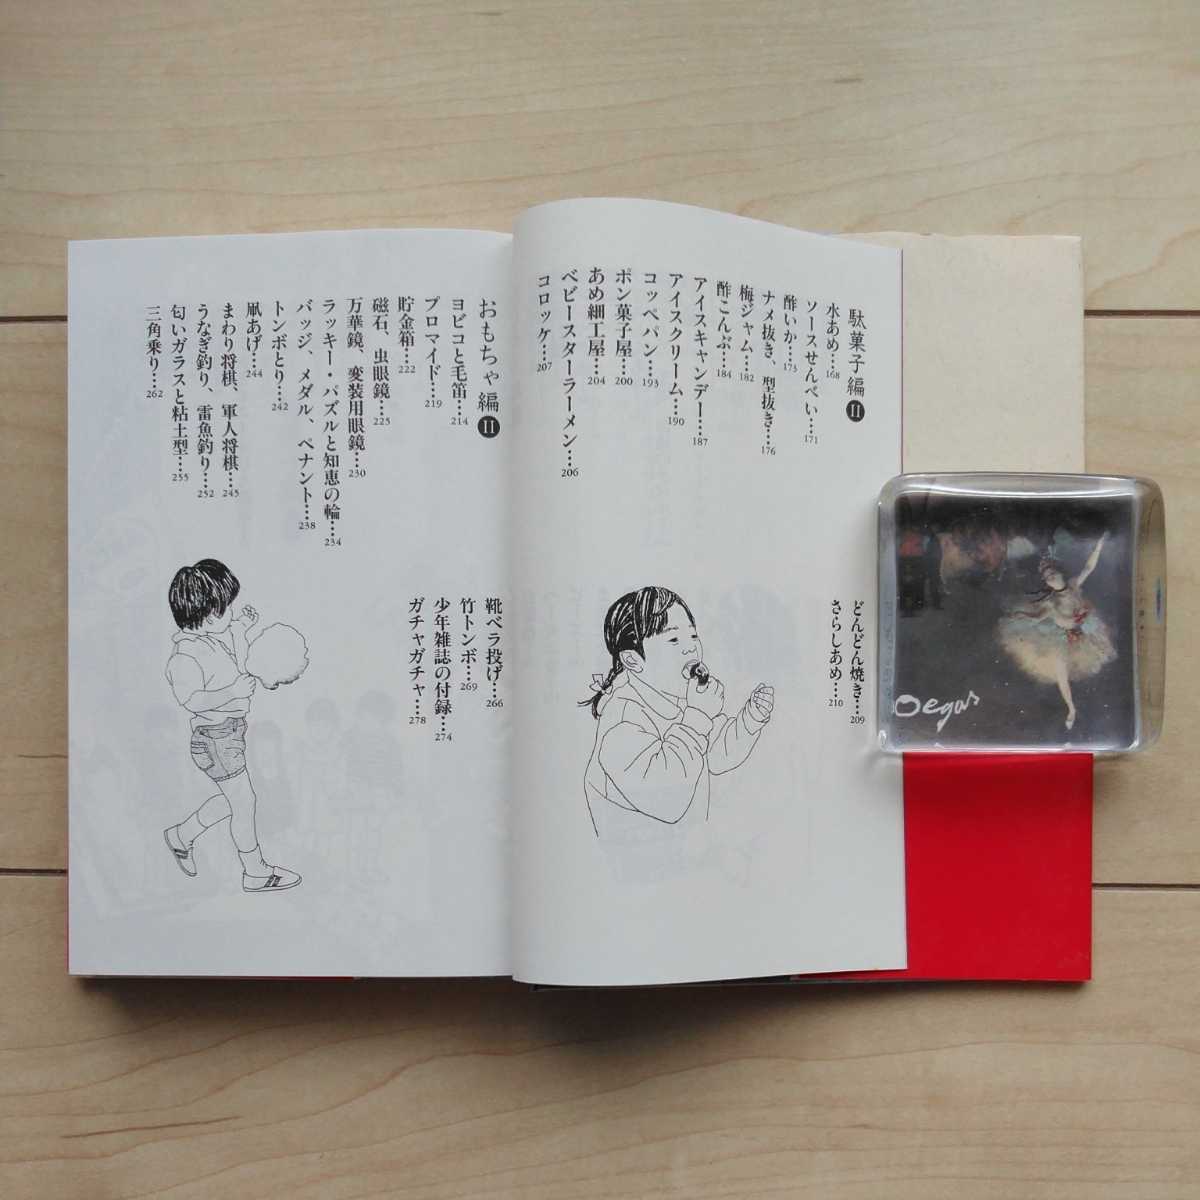 駄菓子編 II
水あめ…168
ソースせんべい…171
酢いか…173
ナメ抜き、型抜き…176
梅ジャム…182
酢こんぶ…184
アイスキャンデー…187
アイスクリーム…190
コッペパン…193
ポン菓子屋…200
あめ細工屋…204
ベビースターラーメン…206
コロッケ…207
どんどん焼き…209
さらしあめ…210
おもちゃ編 II
ヨビコと毛笛…214
プロマイド…219
貯金箱…222
磁石、虫眼鏡…225
万華鏡、変装用眼鏡…230
ラッキー・パズルと知恵の輪…234
バッジ、メダル、ペナント…238
トンボとり…242
凧あげ…244
まわり将棋、軍人将棋…245
うなぎ釣り、雷魚釣り…252
匂いガラスと粘土型…255
三角乗り…262
靴ベラ投げ…266
竹トンボ…269
少年雑誌の付録…274
ガチャガチャ…278
Degas